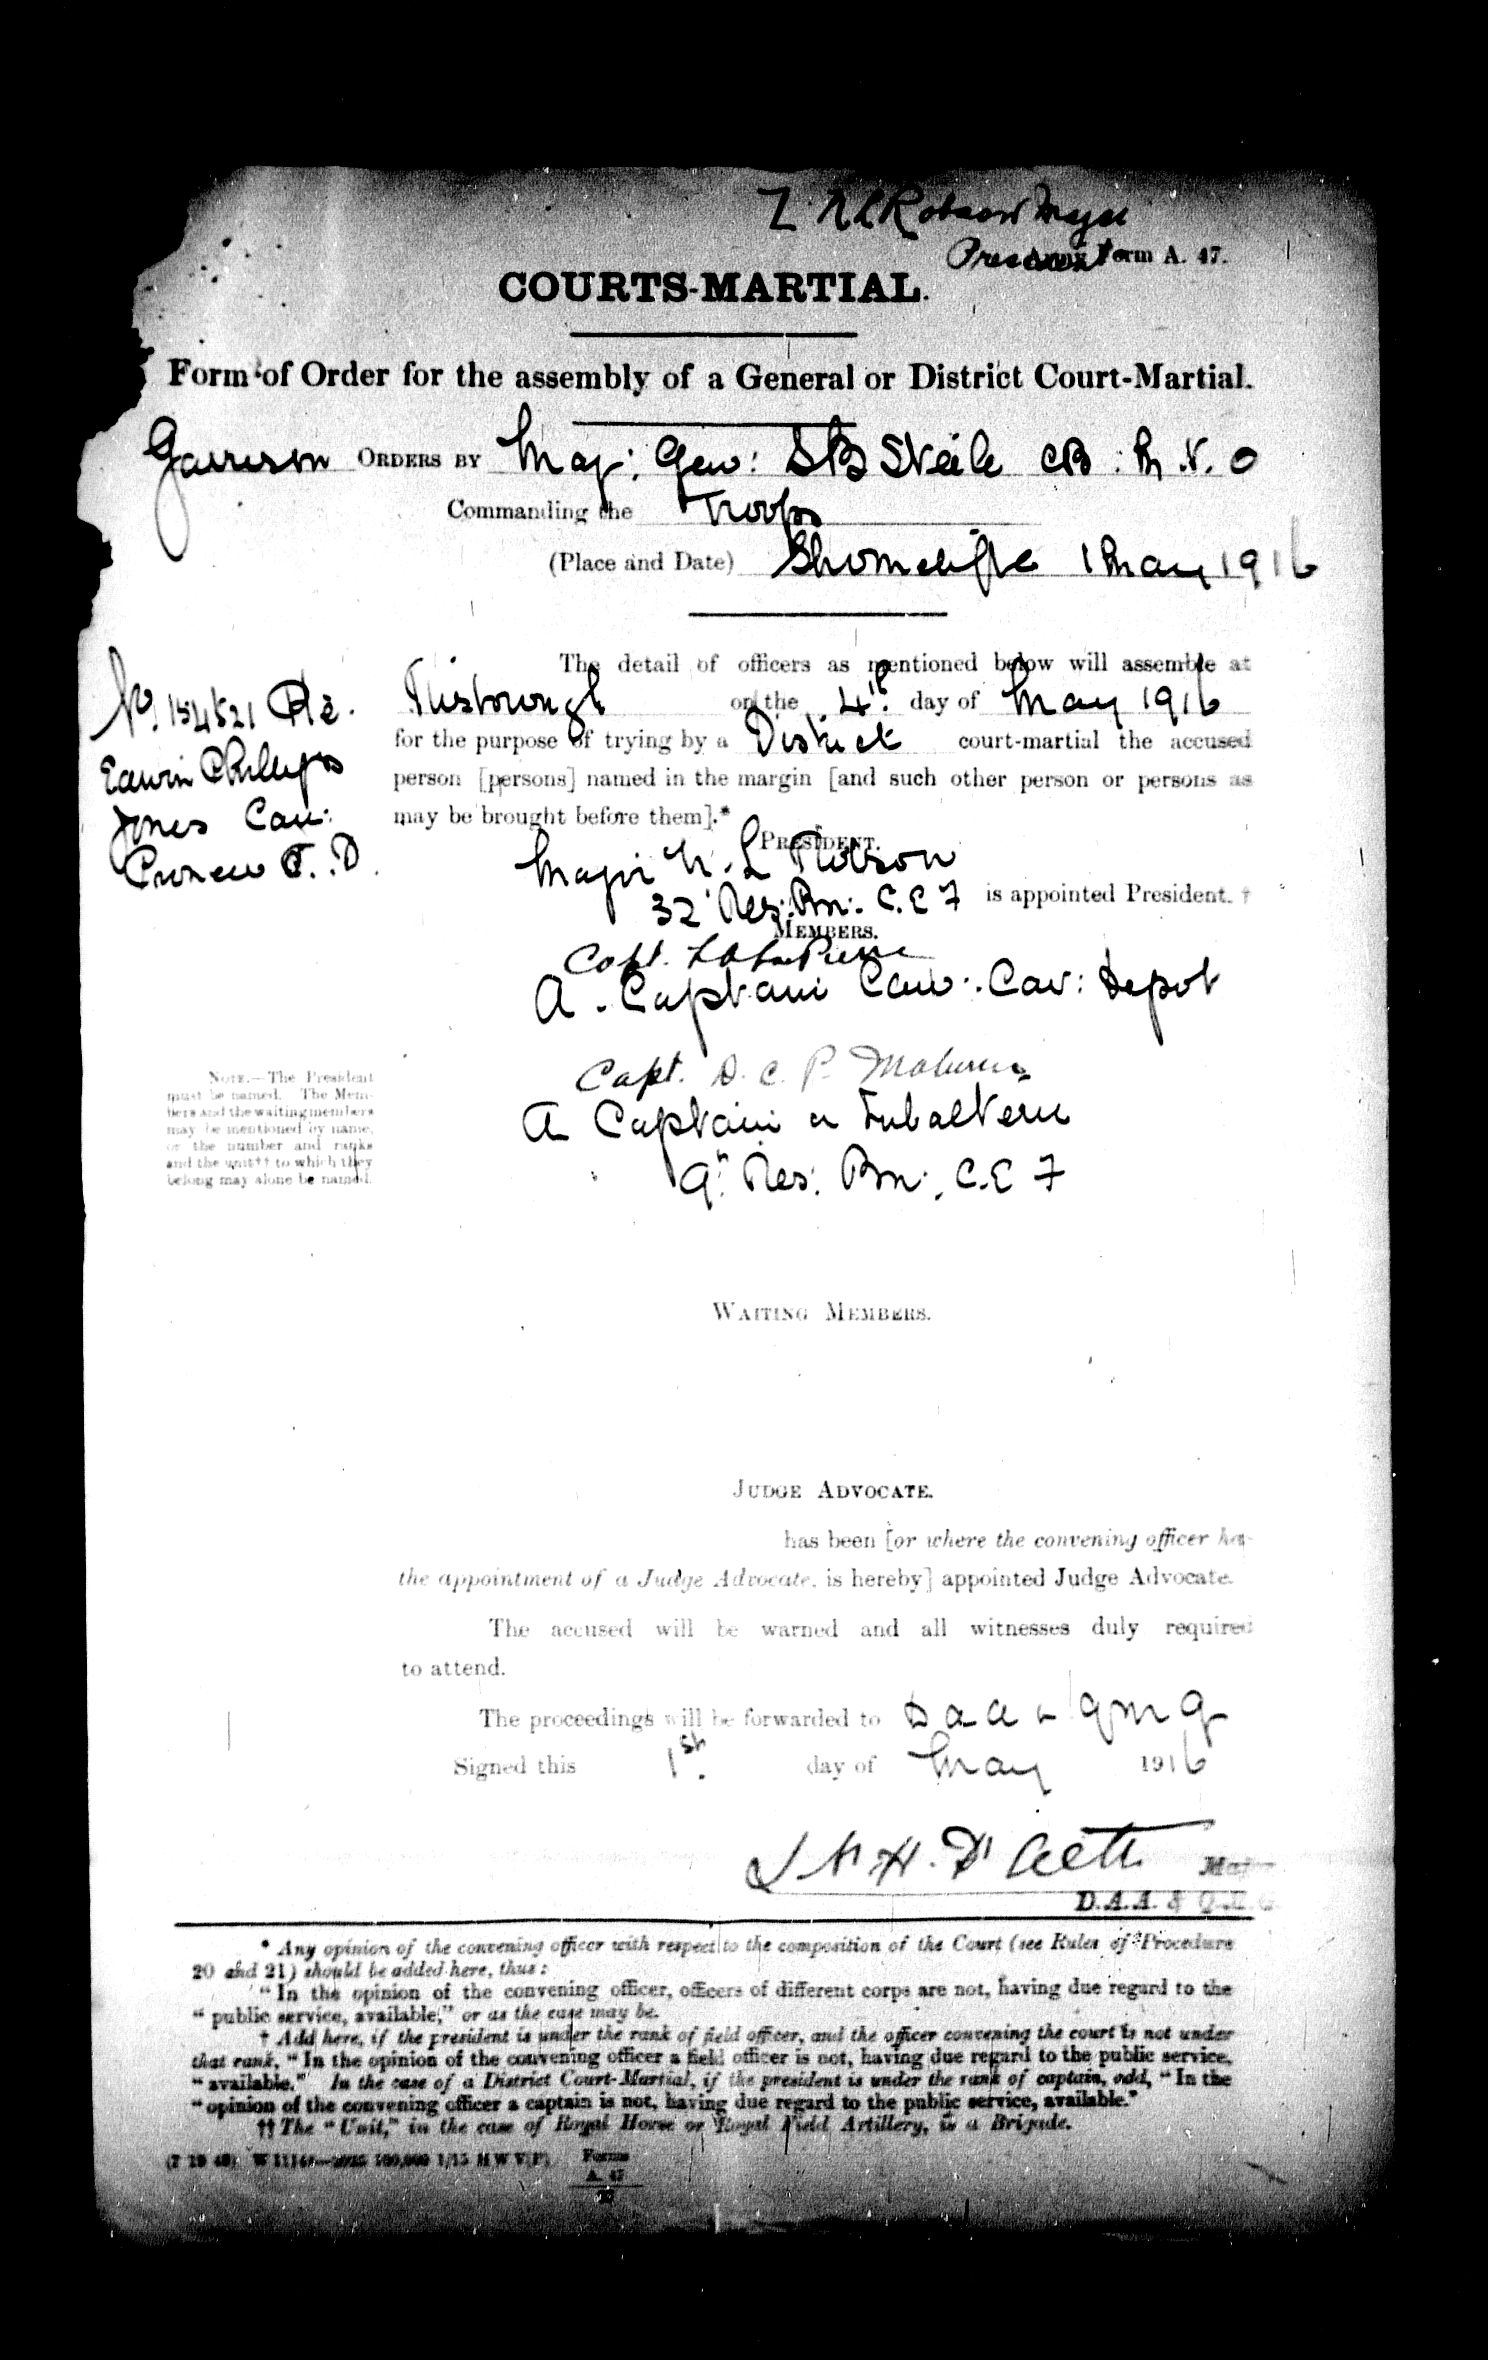 Z N L Robson Major
President
Army Form A. 47.
COURTS-MARTIAL.
Form of Order for the assembly of a General or District Court-Martial.
Garrison ORDERS BY Maj: Gen: S B Steele CB: M.V.O
Commanding the Troops
(Place and Date) Shorncliffe 1 May 1916
The detail of officers as mentioned below will assemble at
on the 4th day of May 1916
for the purpose of trying by a District court-martial the accused
person [persons] named in the margin [and such other person or persons as
may be brought before them].*
No. 154521 Pte.
Edwin Phillips
Jones Can:
PRESIDENT.
Major N. L Robson
32 Res: Bn: C.E F is appointed President. †
MEMBERS.
Capt.
A. Captain Can:. Cav: Depot
Capt. D. C. P.
A Captain or Subaltern
9th Res: Bn:. C.E F
NOTE.—The President
must be named. The Mem-
bers and the waiting members
may be mentioned by name,
or the number and ranks
and the unit†† to which they
belong may alone be named.
WAITING MEMBERS.
JUDGE ADVOCATE.
has been [or where the convening officer has
the appointment of a Judge Advocate, is hereby] appointed Judge Advocate.
The accused will be warned and all witnesses duly required
to attend.
The proceedings will be forwarded to D a a & q m g
Signed this 1st. day of May 1916
Major
D.A.A. & Q.M.G.
* Any opinion of the convening officer with respect to the composition of the Court (see Rules of Procedure
20 and 21) should be added here, thus:
"In the opinion of the convening officer, officers of different corps are not, having due regard to the
"public service, available," or as the case may be.
† Add here, if the president is under the rank of field officer, and the officer convening the court is not under
that rank, "In the opinion of the convening officer a field officer is not, having due regard to the public service,
"available." In the case of a District Court-Martial, if the president is under the rank of captain, add, "In the
"opinion of the convening officer a captain is not, having due regard to the public service, available."
†† The "Unit," in the case of Royal Horse or Royal Field Artillery, is a Brigade.
Forms
A. 47